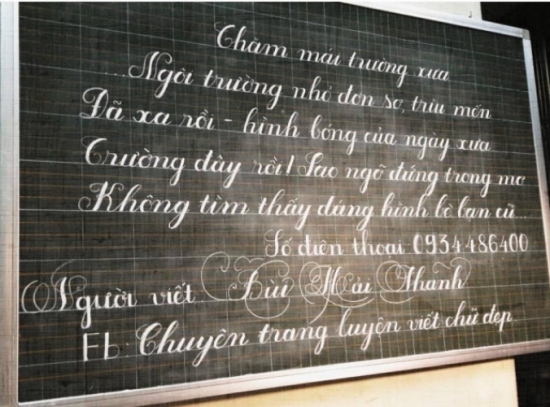 Thăm mái trường xưa
...Ngôi trường nhỏ đơn sơ, trìu mến
Đã xa rồi - hình bóng của ngày xưa
Trường đây rồi! Sao ngỡ đứng trong mơ
Không tìm thấy dáng hình bè bạn cũ...
Số điện thoại 0934486400
Người viết Bùi Thanh
Fb: Chuyên trang luyện viết chữ đẹp